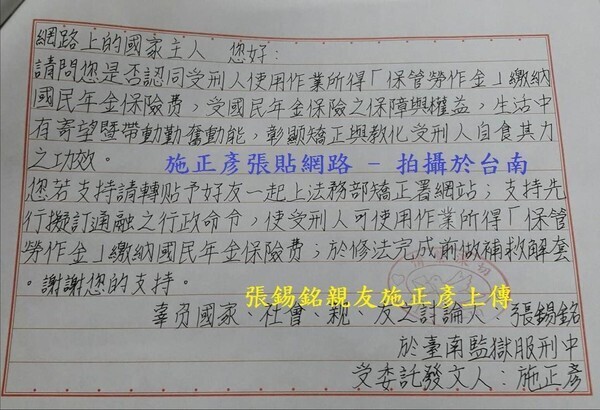 網路上的國家主人　您好：
請問您是否認同受刑人使用作業所得「保管勞作金」繳納
國民年金保險費，受國民年金保險之保障與權益，生活中
有寄望暨帶動勤奮動能，彰顯矯正與教化受刑人自食其力
之功效。
施正彥張貼網路 - 拍攝於台南
您若支持請轉貼予好友一起上法務部矯正署網站；支持先
行擬訂通融之行政命令，使受刑人可使用作業所得「保管
勞作金」繳納國民年金保險費；於修法完成前做補救解套
。謝謝您的支持。
張錫銘親友施正彥上傳
辜負國家、社會、親、友之討論人：張錫銘
於臺南監獄服刑中
受委託發文人：施正彥